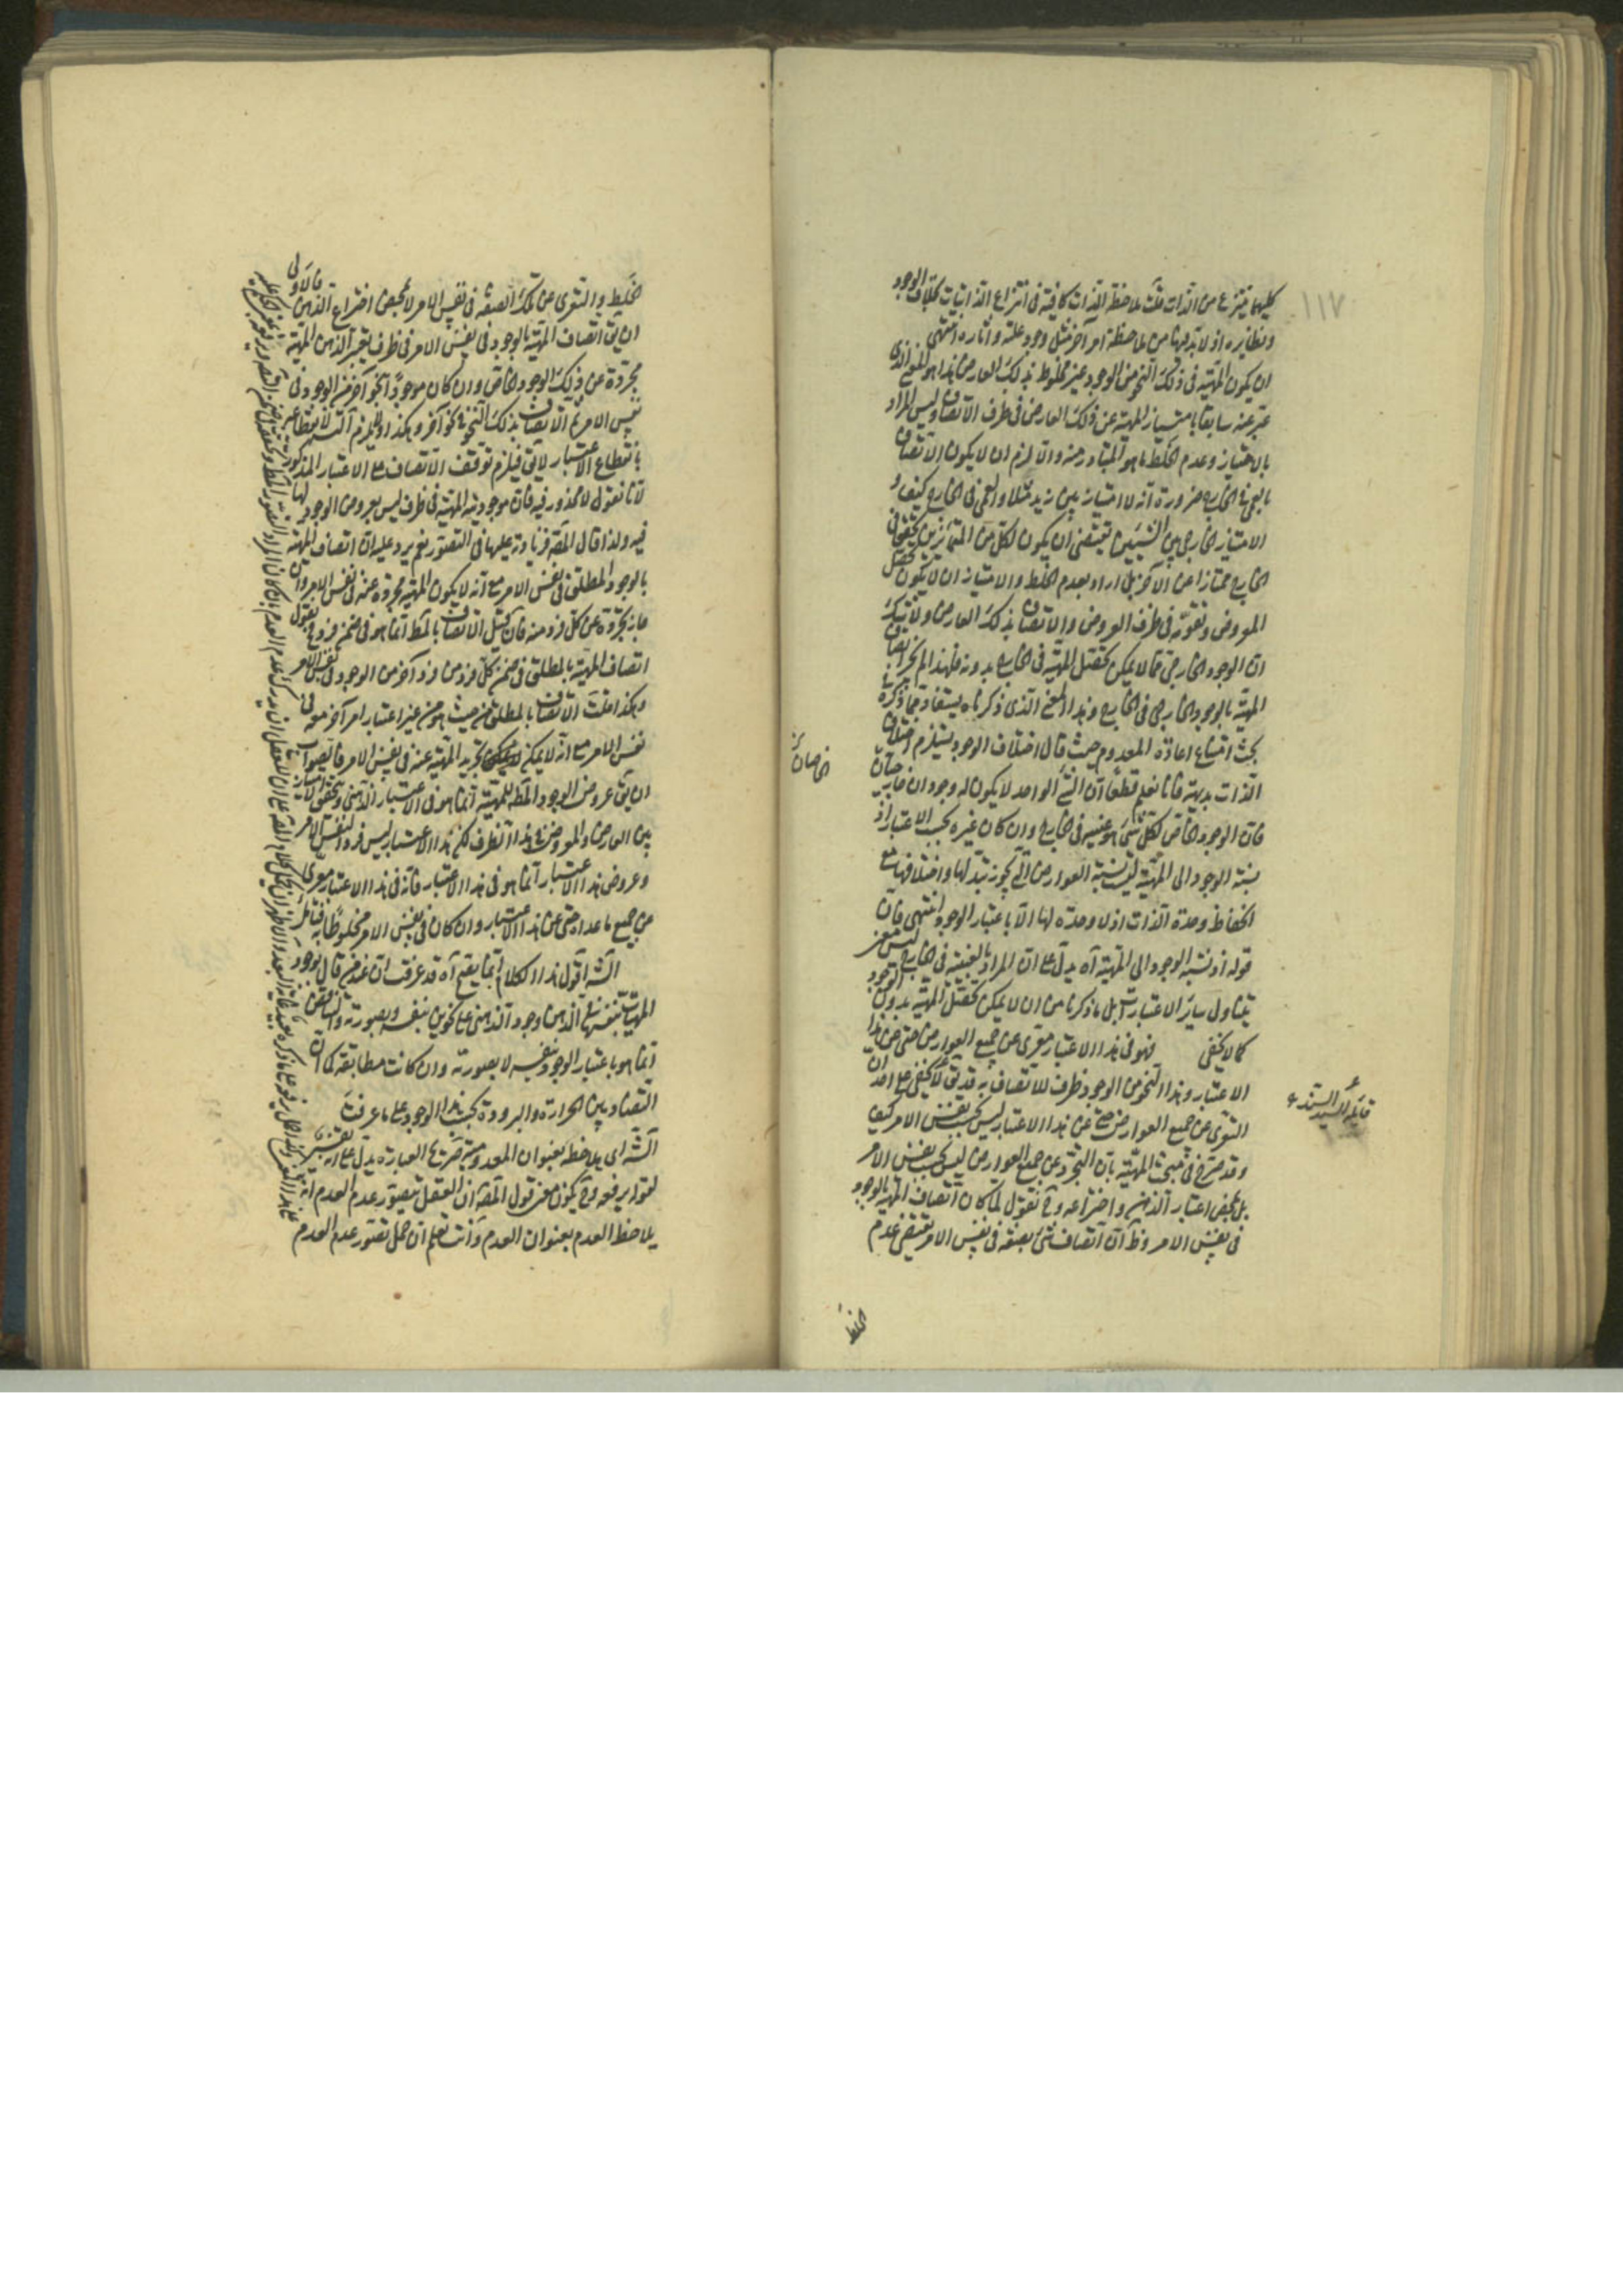 ١١٧
كليهما ينتزع من الذات قلت ملاحظة الذات كافية فى انتزاع الذاتيات بخلاف الوجود
ونظايره اذ لا بد فيها من ملاحظة امر آخر مثل وجود علته وآثاره انتهى
ان يكون المهيّة فى ذلك النحو من الوجود غير مخلوط بذلك العارض هذا هو المعنى الذى
عبّر عنه سابقا بامتياز المهية عن ذلك العارض فى ظرف الاتصاف وليس المراد
بالامتياز وعدم الخلط ما هو المتبادر منه والا لزم ان لا يكون الاتصاف
بالعمى فى الخارج ضرورة انه لا امتياز بين زيد مثلا والعمى فى الخارج كيف و
الامتياز الخارجى بين الشيئين يقتضى ان يكون لكل من المتمايزين تحقق فى
الخارج ممتازا عن الآخر بل اراد بعدم الخلط والامتياز ان لا يكون تحصل
المعروض وتقومه فى ظرف العروض والاتصاف بذلك العارض ولا شك
ان الوجود الخارجى مما لا يمكن تحصل المهية فى الخارج بدونه فلهذا لم يجز اتصاف
المهية بالوجود الخارجى فى الخارج وهذا المعنى الذى ذكرناه يستفاد مما ذكره فى
بحث امتناع اعادة المعدوم حيث قال اختلاف الوجود يستلزم اختلاف
الذات بديهة فانا نعلم قطعا ان الشئ الواحد لا يكون له وجودان خارجيان
خاصان
فان الوجود الخاص لكل شئ هو عينه فى الخارج وان كان غيره بحسب الاعتبار اذ
نسبة الوجود الى المهية ليست نسبة العوارض التى يجوز تبدلها واختلافها مع
انحفاظ وحدة الذات اذ لا وحدة لها الا باعتبار الوجود انتهى فان
قوله اذ نسبة الوجود الى المهية آه يدل على ان المراد بالعينية فى الخارج ليس معنى
يتناول ساير الاعتبارات بل ما ذكرنا من ان لا يمكن تحصل المهية بدون الوجود
كما لا يخفى فهو فى هذا الاعتبار معرى عن جميع العوارض حتى عن هذا
الاعتبار وهذا النحو من الوجود ظرف للاتصاف به قد يقال لا يخفى على احد ان
قائله السيد السند
التعرى عن جميع العوارض حتى عن هذا الاعتبار ليس بحسب نفس الامر كيف
وقد صرح فى مبحث المهيّة بان التجرد عن جميع العوارض ليس بحسب نفس الامر
بل بمحض اعتبار الذهن واختراعه وح نقول لما كان اتصاف المهية بالوجود
فى نفس الامر وظ ان اتصاف شئ بصفة فى نفس الامر يقتضى عدم
الخلط
الخلط والتعرى عن تلك الصفة فى نفس الامر لا بمحض اختراع الذهن فالاولى
ان يقال اتصاف المهية بالوجود فى نفس الامر فى ظرف يعتبر الذهن المهية
مجردة عن ذلك الوجود الخاص وان كان موجودا بنحو آخر من الوجود فى
نفس الامر ثم الاتصاف بذلك النحو فى نحو آخر وهكذا ولا يلزم التسلسل لانقطاعه
بانقطاع الاعتبار لا يقال فيلزم توقف الاتصاف على الاعتبار المذكور
لانا نقول لا محذور فيه فان موجودية المهية فى ظرف ليس بعروض الوجود لها
فيه ولذا قال المص فزيادته عليها فى التصور نعم يرد عليه ان اتصاف المهية
بالوجود المطلق فى نفس الامر مع انه لا يكون المهية مجردة عنه فى نفس الامر وان
جاز تجرده عن كل فرد منه فان قيل الاتصاف بالمط انما هو فى ضمن فرد فنقول
اتصاف المهية بالمطلق فى ضمن كل فرد من فرد آخر من الوجود فى نفس الامر
وهكذا قلت الاتصاف بالمطلق من حيث هو من غير اعتبار امر آخر معه فى
نفس الامر مع انه لا يمكن تجريد المهية عنه فى نفس الامر فالصواب
ان يقال عروض الوجود المط للمهية انما هو فى الاعتبار الذهنى وتحقق الامتياز
بين العارض والمعروض فى هذا الظرف لكن هذا الاعتبار ليس فردا لنفس الامر
وعروض هذا الاعتبار انما هو فى هذا الاعتبار فانه فى هذا الاعتبار معرى
عن جميع ما عداه حتى عن هذا الاعتبار وان كان فى نفس الامر مخلوطا به فتامل
الش اقول هذا الكلام انما يصح آه قد عرفت ان عند من قال بوجود
المهيات بنفسها فى الذهن وجود الذهنى على نحوين بنفسه وبصورته والتناقض
انما هو باعتبار الوجود بنفسه لا بصورته وان كانت مطابقة كما ان
التضاد بين الحرارة والبرودة بحسب هذا الوجود على ما عرفت
الش اى يلاحظه بعنوان المعدومية آخر هذا العبارة يدل على انه تفسير
لقوله يرفعه وح يكون معنى قول المص ان العقل يتصور عدم العدم انه
يلاحظ العدم بعنوان العدم وانت تعلم ان حمل تصور عدم العدم